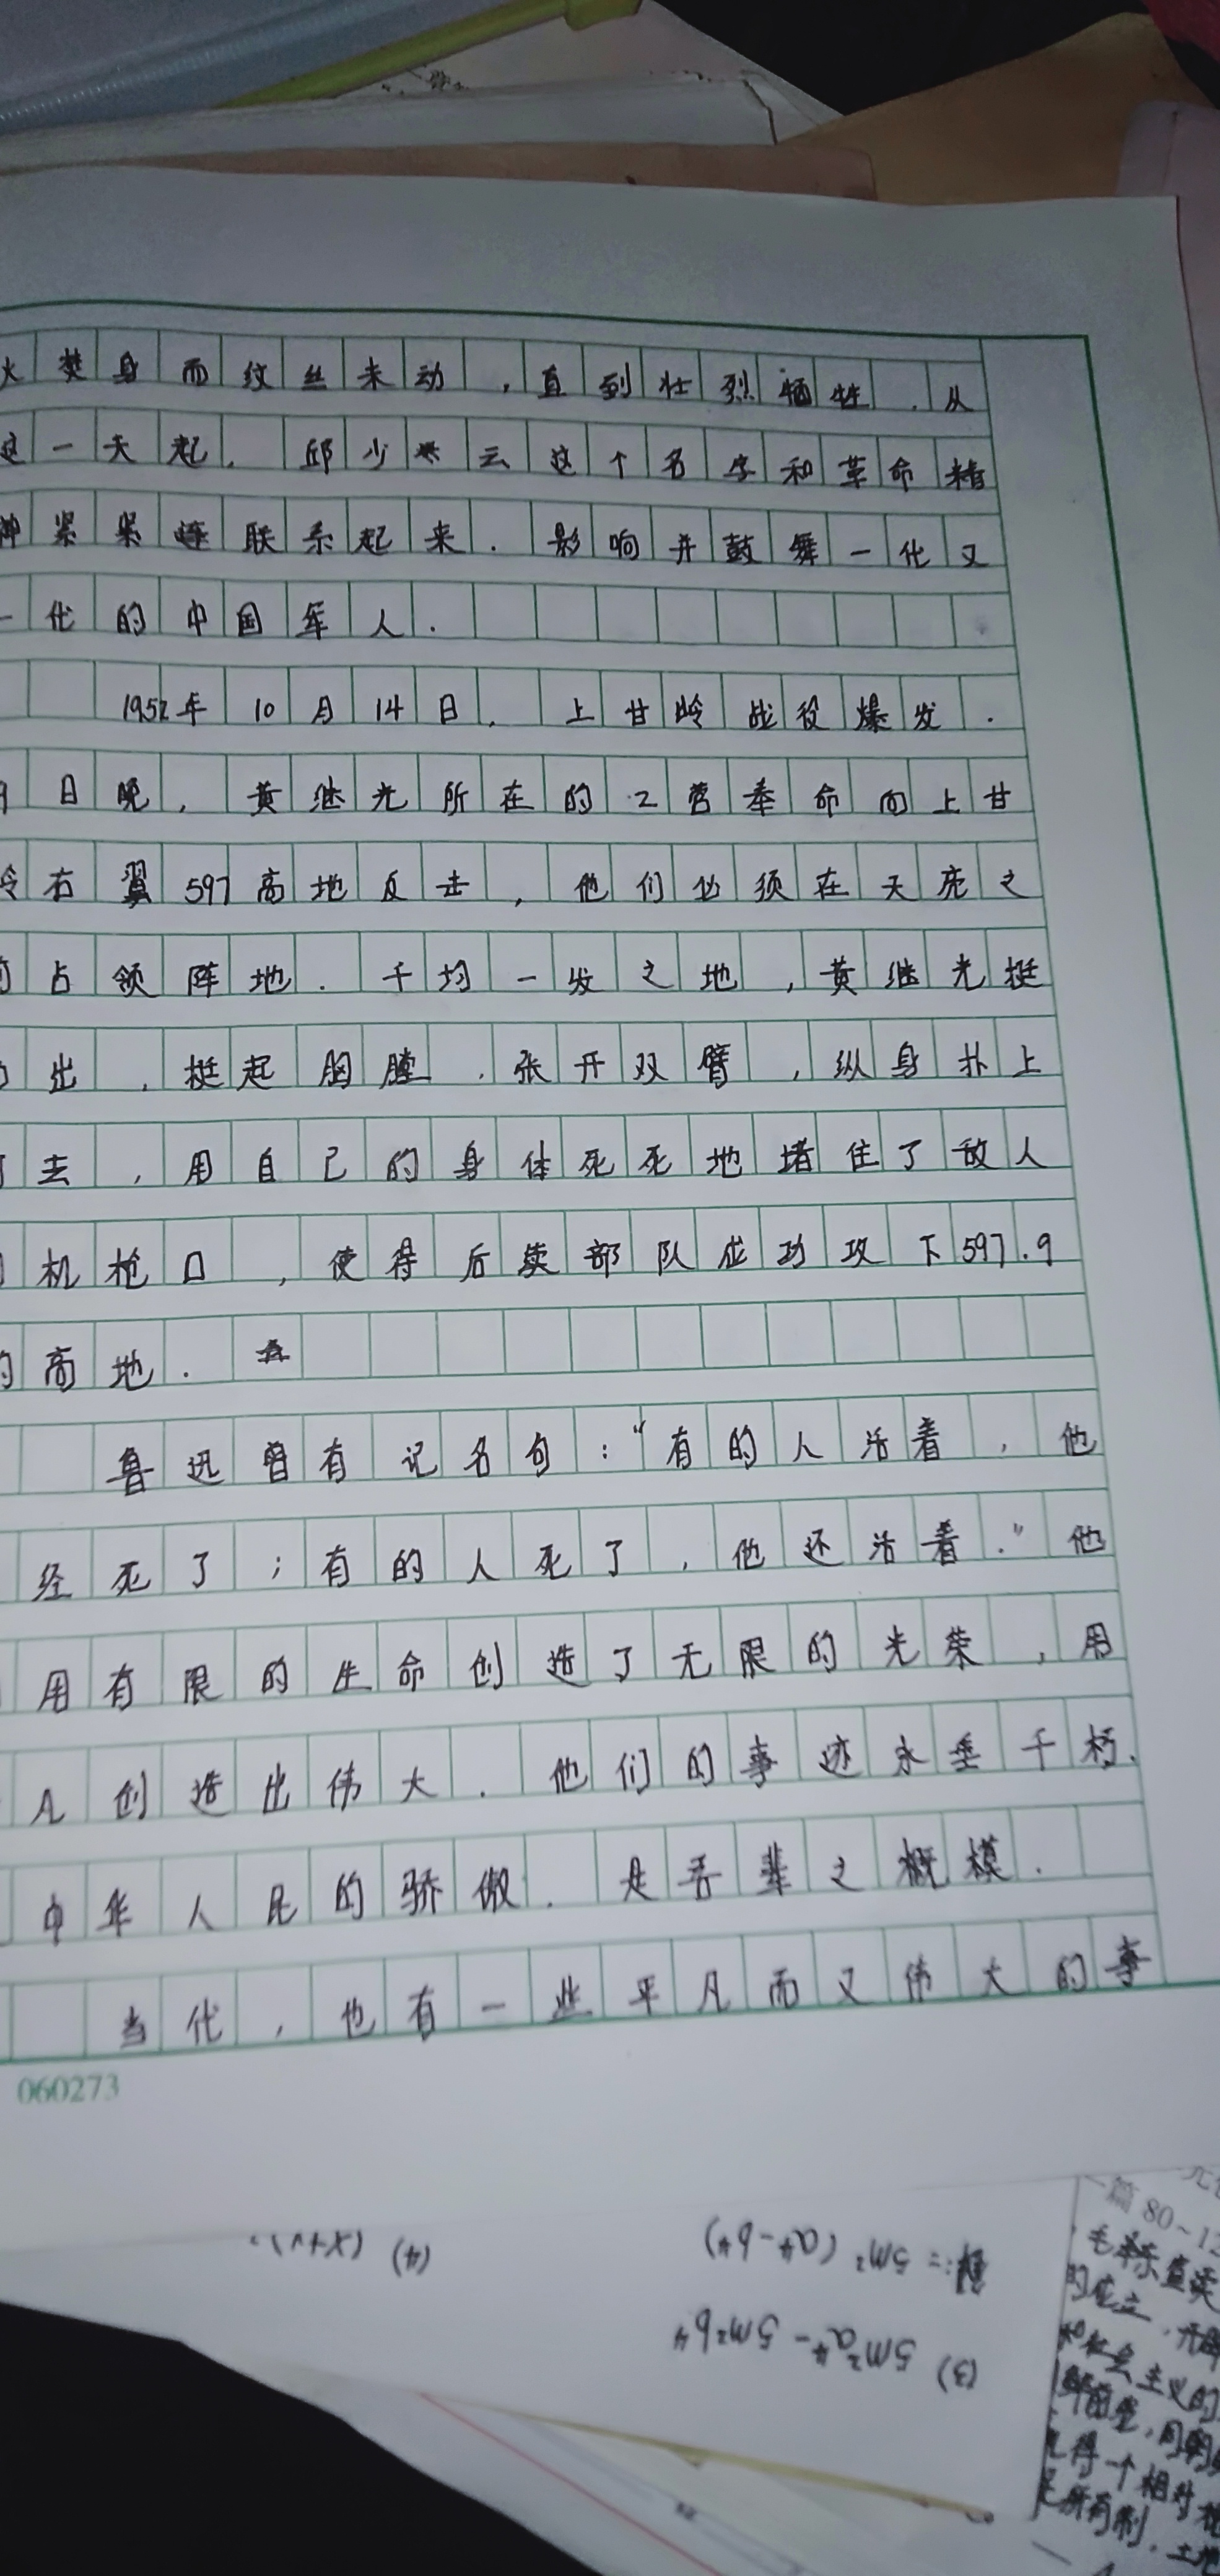 火焚身而纹丝未动,直到壮烈牺牲.从
这一天起.邱少云这个名字和革命精
神紧紧连联系起来.影响并鼓舞一代又
一代的中国军人.
1952年10月14日.上甘岭战役爆发.
9日晚,黄继光所在的2营奉命向上甘
岭右翼597高地反击,他们必须在天亮之
前占领阵地.千均一发之地,黄继光挺
出,挺起胸膛.张开双臂,纵身扑上
去,用自己的身体死死地堵住了敌人
机枪口,使得后续部队成功攻下597.9
的高地.
鲁迅曾有记名句:“有的人活着,他
经死了;有的人死了,他还活着.”他
用有限的生命创造了无限的光荣,用
凡创造出伟大.他们的事迹永垂千朽.
中华人民的骄傲.是吾辈之概模.
当代,也有一些平凡而又伟大的事
060273
(4) (x+y)²
解:=5m²(a⁴-b⁴)
(3) 5m²a⁴-5m²b⁴
一篇80~12
毛泽东
的成立,
和社会主义的
得一个相对
所有制.土地